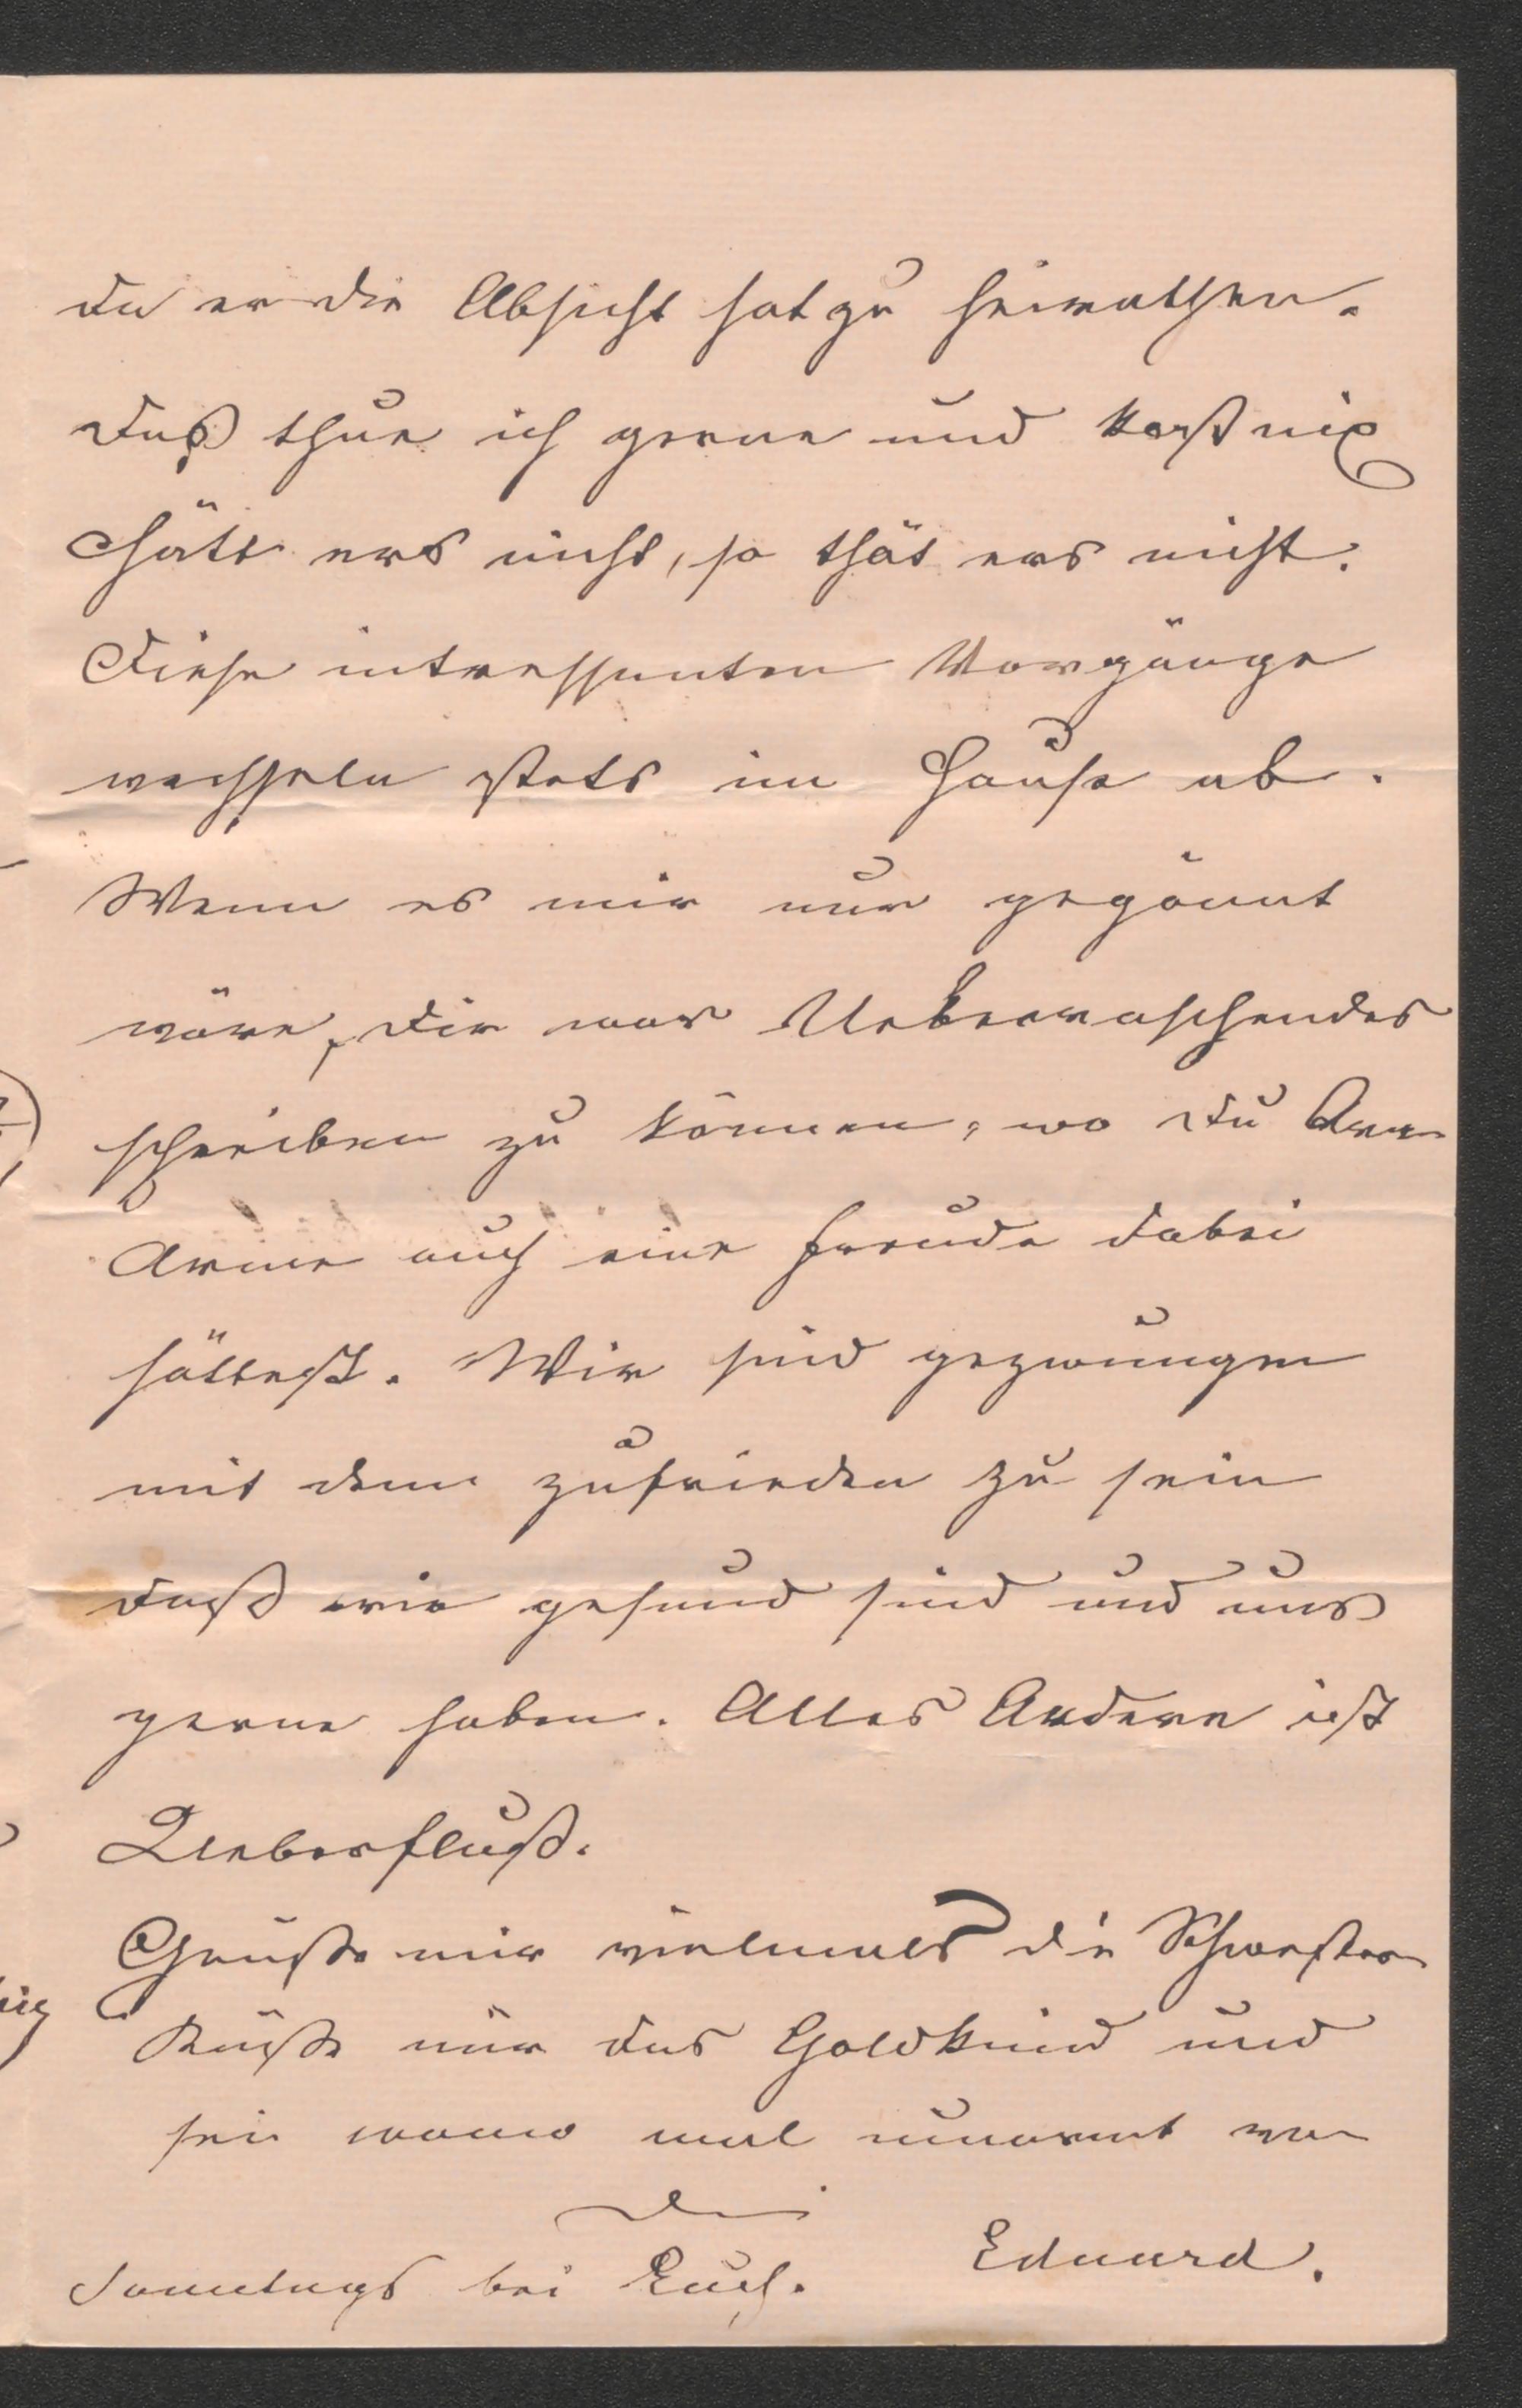 da er die Absicht hat zu heirathen.
Daß thue ich gerne und kost nix
Hätt ers nicht, so thät ers nicht.
Diese intressanten Vorgänge
wechseln stets im Hause ab.
Wenn es mir nur gegönnt
wäre, Dir was Ueberraschendes
schreiben zu können, wo Du
Arme auch eine Freude dabei
hättest. Wir sind gezwungen
mit dem zufrieden zu sein
daß wir gesund sind und uns
gerne haben. Alles Andere ist
Ueberfluß.
Grüße mir vielmals die Schwester
Küße mir das Goldkind und
sei mal umarmt von
Dei
Eduard.
Samstags bei Euch.